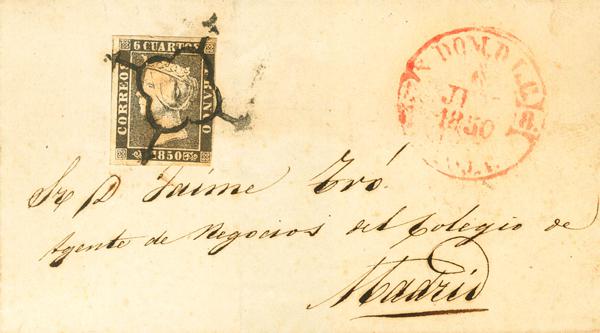 6 CUARTOS
CORREOS
FRANCO
1850
S. DOMO. D. L. C.
6
JU
1850
Sr. D. Jaime Tró.
Agente de Negocios del Colegio de
Madrid